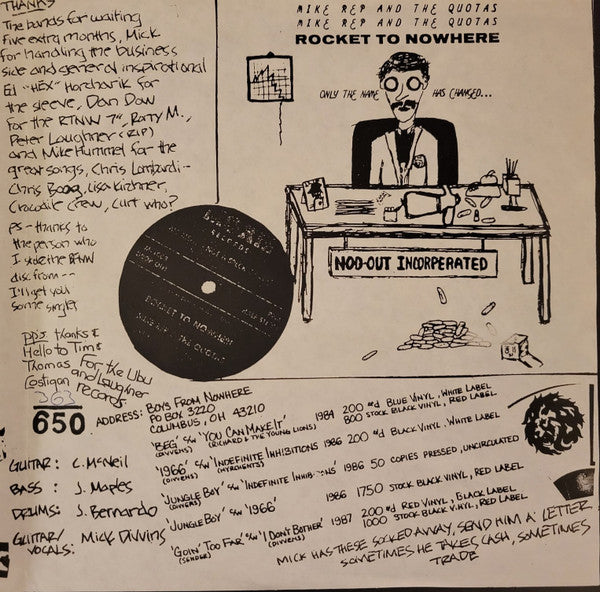 THANKS
The bands for waiting
five extra months, Mick
for handling the business
side and general inspirational
Ed "HEX" Horcharik for
the sleeve, Dan Dow
for the RTNW 7", Rory M.,
Peter Laughner (RIP)
and Mike Hummel for the
great songs, Chris Lombardi--
Chris Boog, Lisa Kirchner,
Crocodile Crew, Curt who?
PS - thanks to
the person who
I stole the RTNW
disc from --
I'll get you
some singles
PPS thanks &
Hello to Tim &
Thomas for the Ubu
Costigan and Laughner
records
363
650
MIKE REP AND THE QUOTAS
MIKE REP AND THE QUOTAS
ROCKET TO NOWHERE
ONLY THE NAME HAS CHANGED...
NOD-OUT INCORPERATED
RECORDS
ROCKET TO NOWHERE
MIKE REP & THE QUOTAS
ADDRESS: BOYS FROM NOWHERE
PO BOX 3220
COLUMBUS, OH 43210
GUITAR: C. McNeil
BASS: J. Maples
DRUMS: J. Bernardo
GUITAR/VOCALS: Mick Divvins
'BEG' b/w 'YOU CAN MAKE IT' 1984 200 #'d BLUE VINYL, WHITE LABEL
(DIVVENS) (RICHARD & THE YOUNG LIONS) 800 STOCK BLACK VINYL, RED LABEL
'1966' b/w 'INDEFINITE INHIBITIONS' 1986 200 #'d BLACK VINYL, WHITE LABEL
(DIVVENS)
'JUNGLE BOY' b/w 'INDEFINITE INHIBITIONS' 1986 50 COPIES PRESSED, UNCIRCULATED
(DIVVENS)
'JUNGLE BOY' b/w '1966' 1986 1750 STOCK BLACK VINYL, RED LABEL
'GOIN' TOO FAR' b/w 'I DON'T BOTHER' 1987 200 #'d RED VINYL, BLACK LABEL
(DIVVENS) 1000 STOCK BLACK VINYL, RED LABEL
MICK HAS THESE SOCKED AWAY, SEND HIM A LETTER
SOMETIMES HE TAKES CASH, SOMETIMES
TRADE